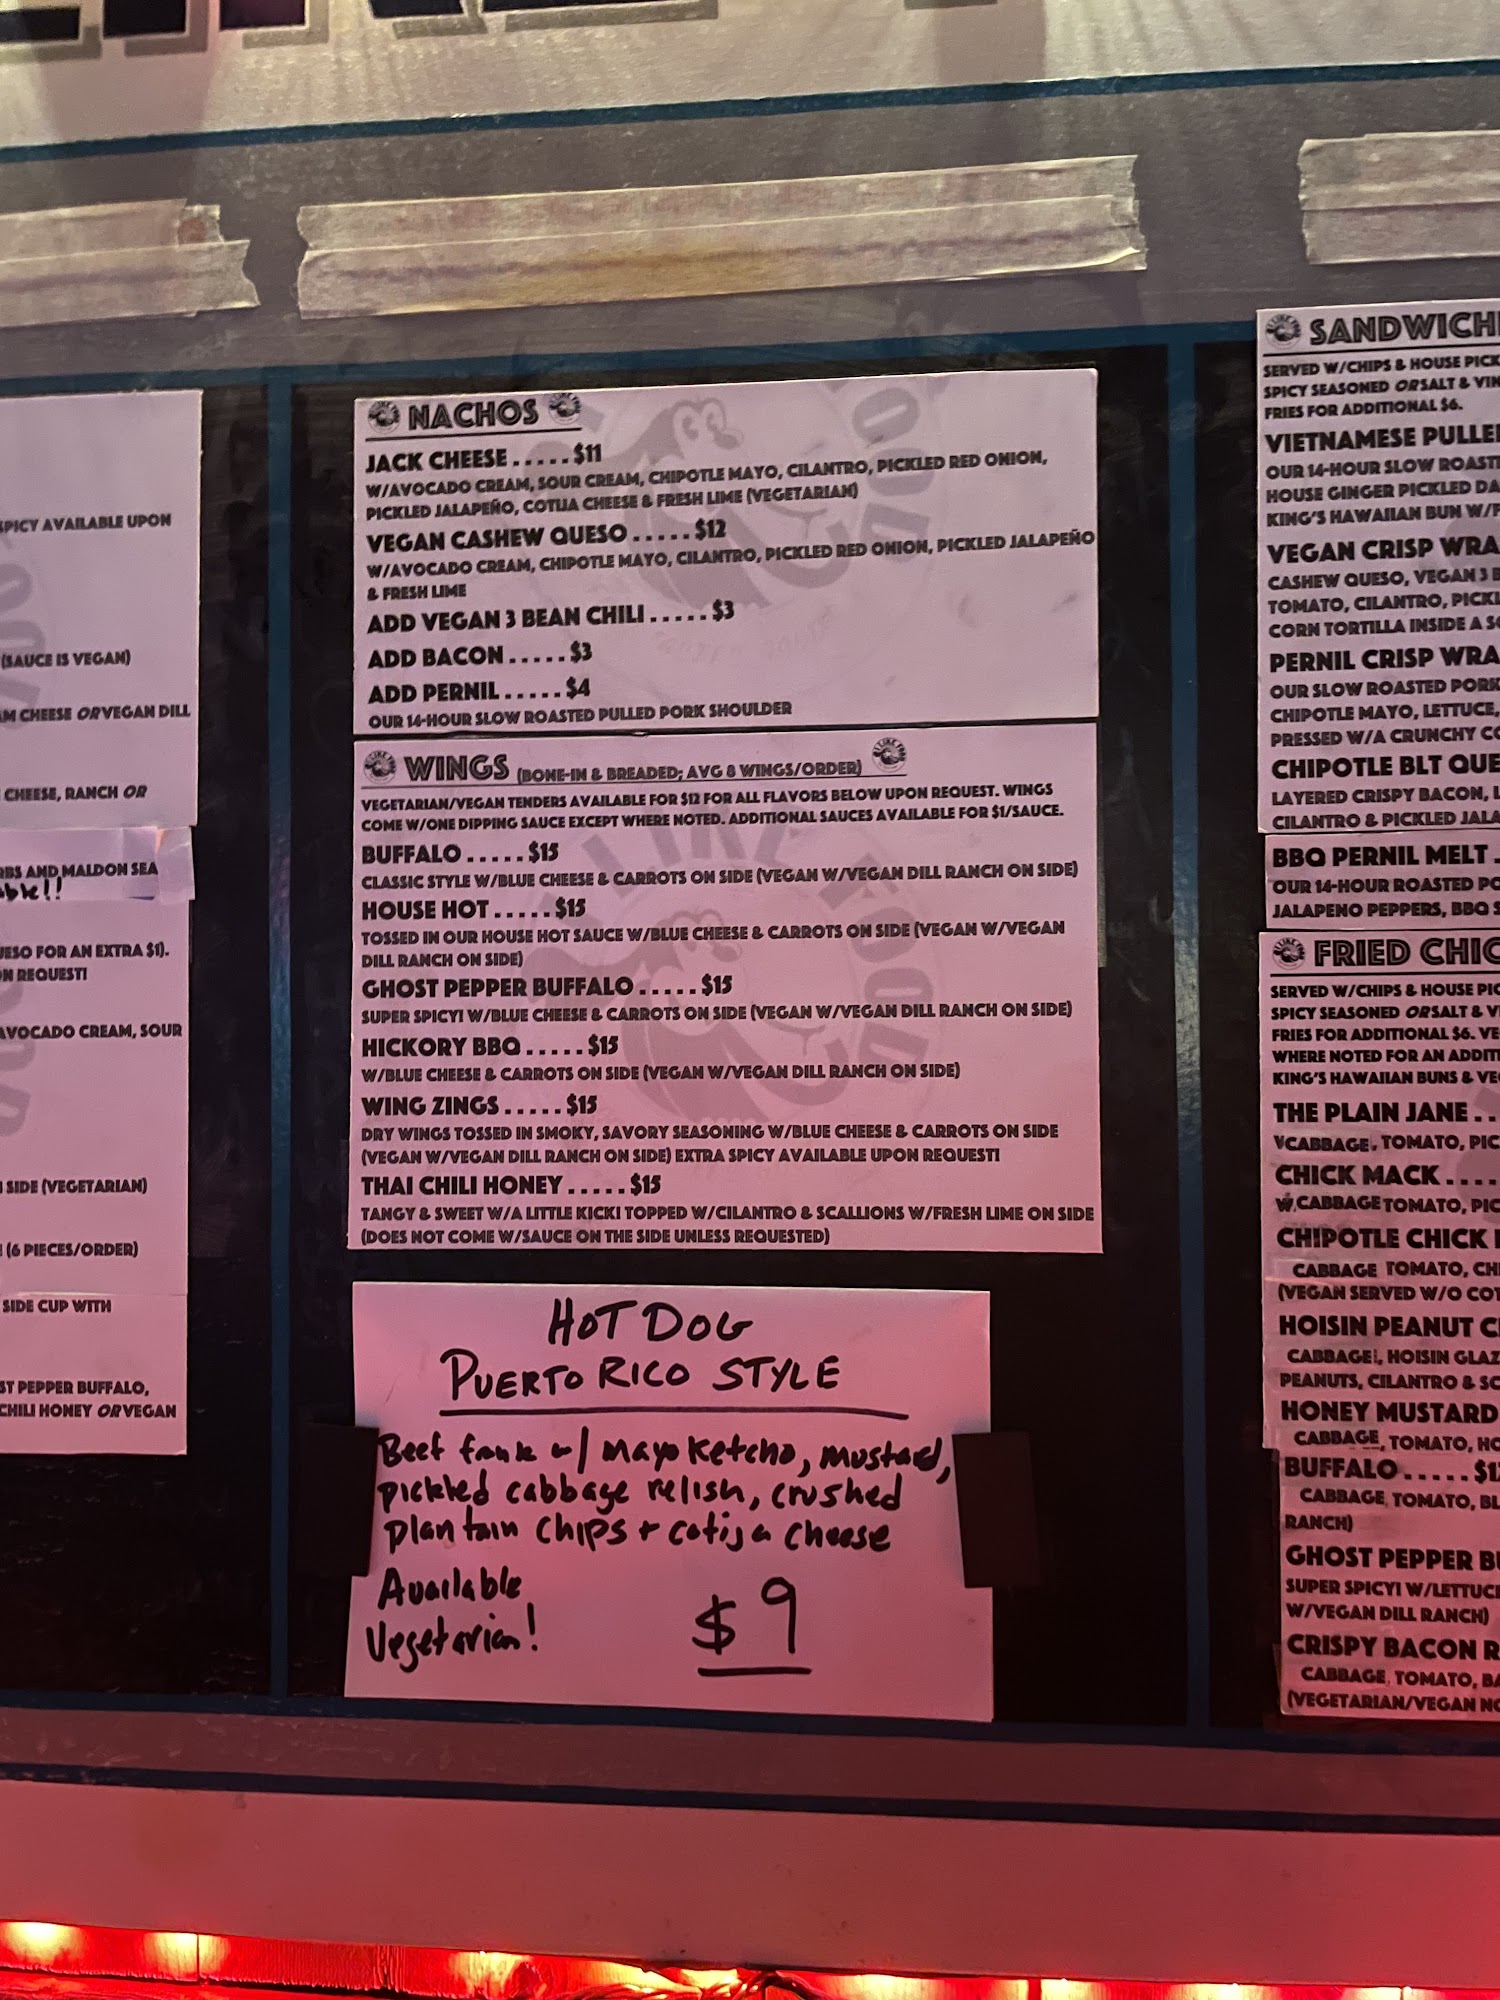 SPICY AVAILABLE UPON
(SAUCE IS VEGAN)
AM CHEESE OR VEGAN DILL
CHEESE, RANCH OR
AND MALDON SEA
FOR AN EXTRA $1).
REQUEST!
AVOCADO CREAM, SOUR
SIDE (VEGETARIAN)
(6 PIECES/ORDER)
SIDE CUP WITH
PEPPER BUFFALO,
CHILI HONEY OR VEGAN
NACHOS
JACK CHEESE.....$11
W/AVOCADO CREAM, SOUR CREAM, CHIPOTLE MAYO, CILANTRO, PICKLED RED ONION,
PICKLED JALAPEÑO, COTIJA CHEESE & FRESH LIME (VEGETARIAN)
VEGAN CASHEW QUESO.....$12
W/AVOCADO CREAM, CHIPOTLE MAYO, CILANTRO, PICKLED RED ONION, PICKLED JALAPEÑO
& FRESH LIME
ADD VEGAN 3 BEAN CHILI.....$3
ADD BACON.....$3
ADD PERNIL.....$4
OUR 14-HOUR SLOW ROASTED PULLED PORK SHOULDER
WINGS (BONE-IN & BREADED; AVG 8 WINGS/ORDER)
VEGETARIAN/VEGAN TENDERS AVAILABLE FOR $12 FOR ALL FLAVORS BELOW UPON REQUEST. WINGS
COME W/ONE DIPPING SAUCE EXCEPT WHERE NOTED. ADDITIONAL SAUCES AVAILABLE FOR $1/SAUCE.
BUFFALO.....$15
CLASSIC STYLE W/BLUE CHEESE & CARROTS ON SIDE (VEGAN W/VEGAN DILL RANCH ON SIDE)
HOUSE HOT.....$15
TOSSED IN OUR HOUSE HOT SAUCE W/BLUE CHEESE & CARROTS ON SIDE (VEGAN W/VEGAN
DILL RANCH ON SIDE)
GHOST PEPPER BUFFALO.....$15
SUPER SPICY! W/BLUE CHEESE & CARROTS ON SIDE (VEGAN W/VEGAN DILL RANCH ON SIDE)
HICKORY BBQ.....$15
W/BLUE CHEESE & CARROTS ON SIDE (VEGAN W/VEGAN DILL RANCH ON SIDE)
WING ZINGS.....$15
DRY WINGS TOSSED IN SMOKY, SAVORY SEASONING W/BLUE CHEESE & CARROTS ON SIDE
(VEGAN W/VEGAN DILL RANCH ON SIDE) EXTRA SPICY AVAILABLE UPON REQUEST!
THAI CHILI HONEY.....$15
TANGY & SWEET W/A LITTLE KICK! TOPPED W/CILANTRO & SCALLIONS W/FRESH LIME ON SIDE
(DOES NOT COME W/SAUCE ON THE SIDE UNLESS REQUESTED)
HOT DOG
PUERTO RICO STYLE
Beef frank w/ mayoketchp, mustard,
pickled cabbage relish, crushed
plantain chips + cotija cheese
Available
Vegetarian!
$9
SANDWICH
SERVED W/CHIPS & HOUSE PICK
SPICY SEASONED OR SALT & VIN
FRIES FOR ADDITIONAL $6.
VIETNAMESE PULLE
OUR 14-HOUR SLOW ROAST
HOUSE GINGER PICKLED DA
KING'S HAWAIIAN BUN W/F
VEGAN CRISP WRA
CASHEW QUESO, VEGAN 3 B
TOMATO, CILANTRO, PICKL
CORN TORTILLA INSIDE A S
PERNIL CRISP WRA
OUR SLOW ROASTED PORK
CHIPOTLE MAYO, LETTUCE,
PRESSED W/A CRUNCHY CO
CHIPOTLE BLT QUE
LAYERED CRISPY BACON, L
CILANTRO & PICKLED JALA
BBQ PERNIL MELT.
OUR 14-HOUR ROASTED PO
JALAPENO PEPPERS, BBQ S
FRIED CHIC
SERVED W/CHIPS & HOUSE PIC
SPICY SEASONED OR SALT & V
FRIES FOR ADDITIONAL $6. VE
WHERE NOTED FOR AN ADDITI
KING'S HAWAIIAN BUNS & VE
THE PLAIN JANE..
CABBAGE, TOMATO, PIC
CHICK MACK....
W. CABBAGE TOMATO, PIC
CHIPOTLE CHICK
CABBAGE TOMATO, CH
(VEGAN SERVED W/O COT
HOISIN PEANUT C
CABBAGE, HOISIN GLAZ
PEANUTS, CILANTRO & SC
HONEY MUSTARD
CABBAGE, TOMATO, HO
BUFFALO.....$1
CABBAGE, TOMATO, BL
RANCH)
GHOST PEPPER B
SUPER SPICY! W/LETTUCE
W/VEGAN DILL RANCH)
CRISPY BACON R
CABBAGE, TOMATO, BA
(VEGETARIAN/VEGAN NO